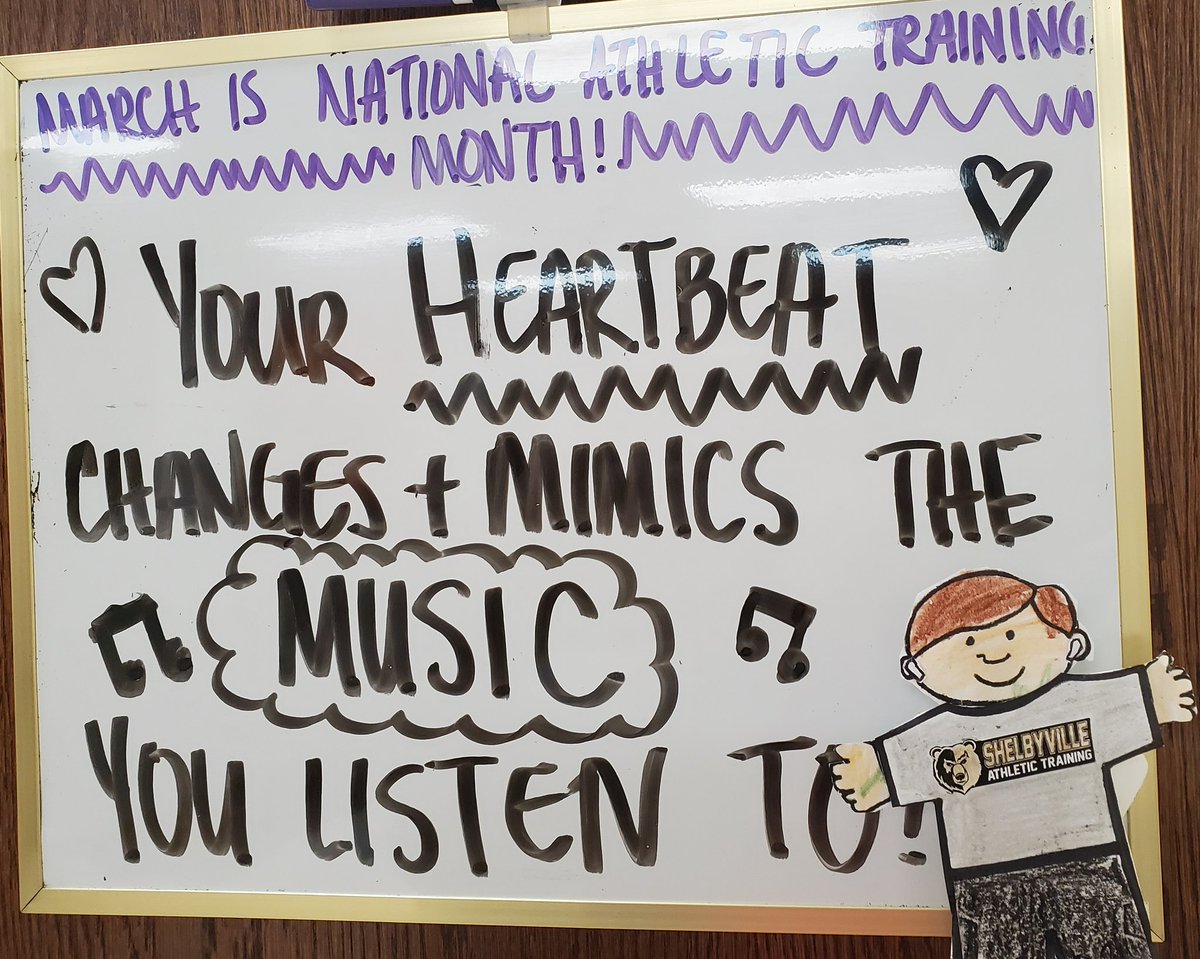 MARCH IS NATIONAL ATHLETIC TRAINING
MONTH!
YOUR HEARTBEAT
CHANGES + MIMICS THE
MUSIC
YOU LISTEN TO!
SHELBYVILLE
ATHLETIC TRAINING